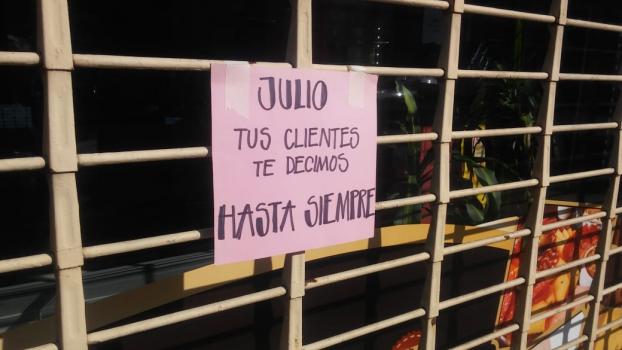 JULIO
TUS CLIENTES
TE DECIMOS
HASTA SIEMPRE